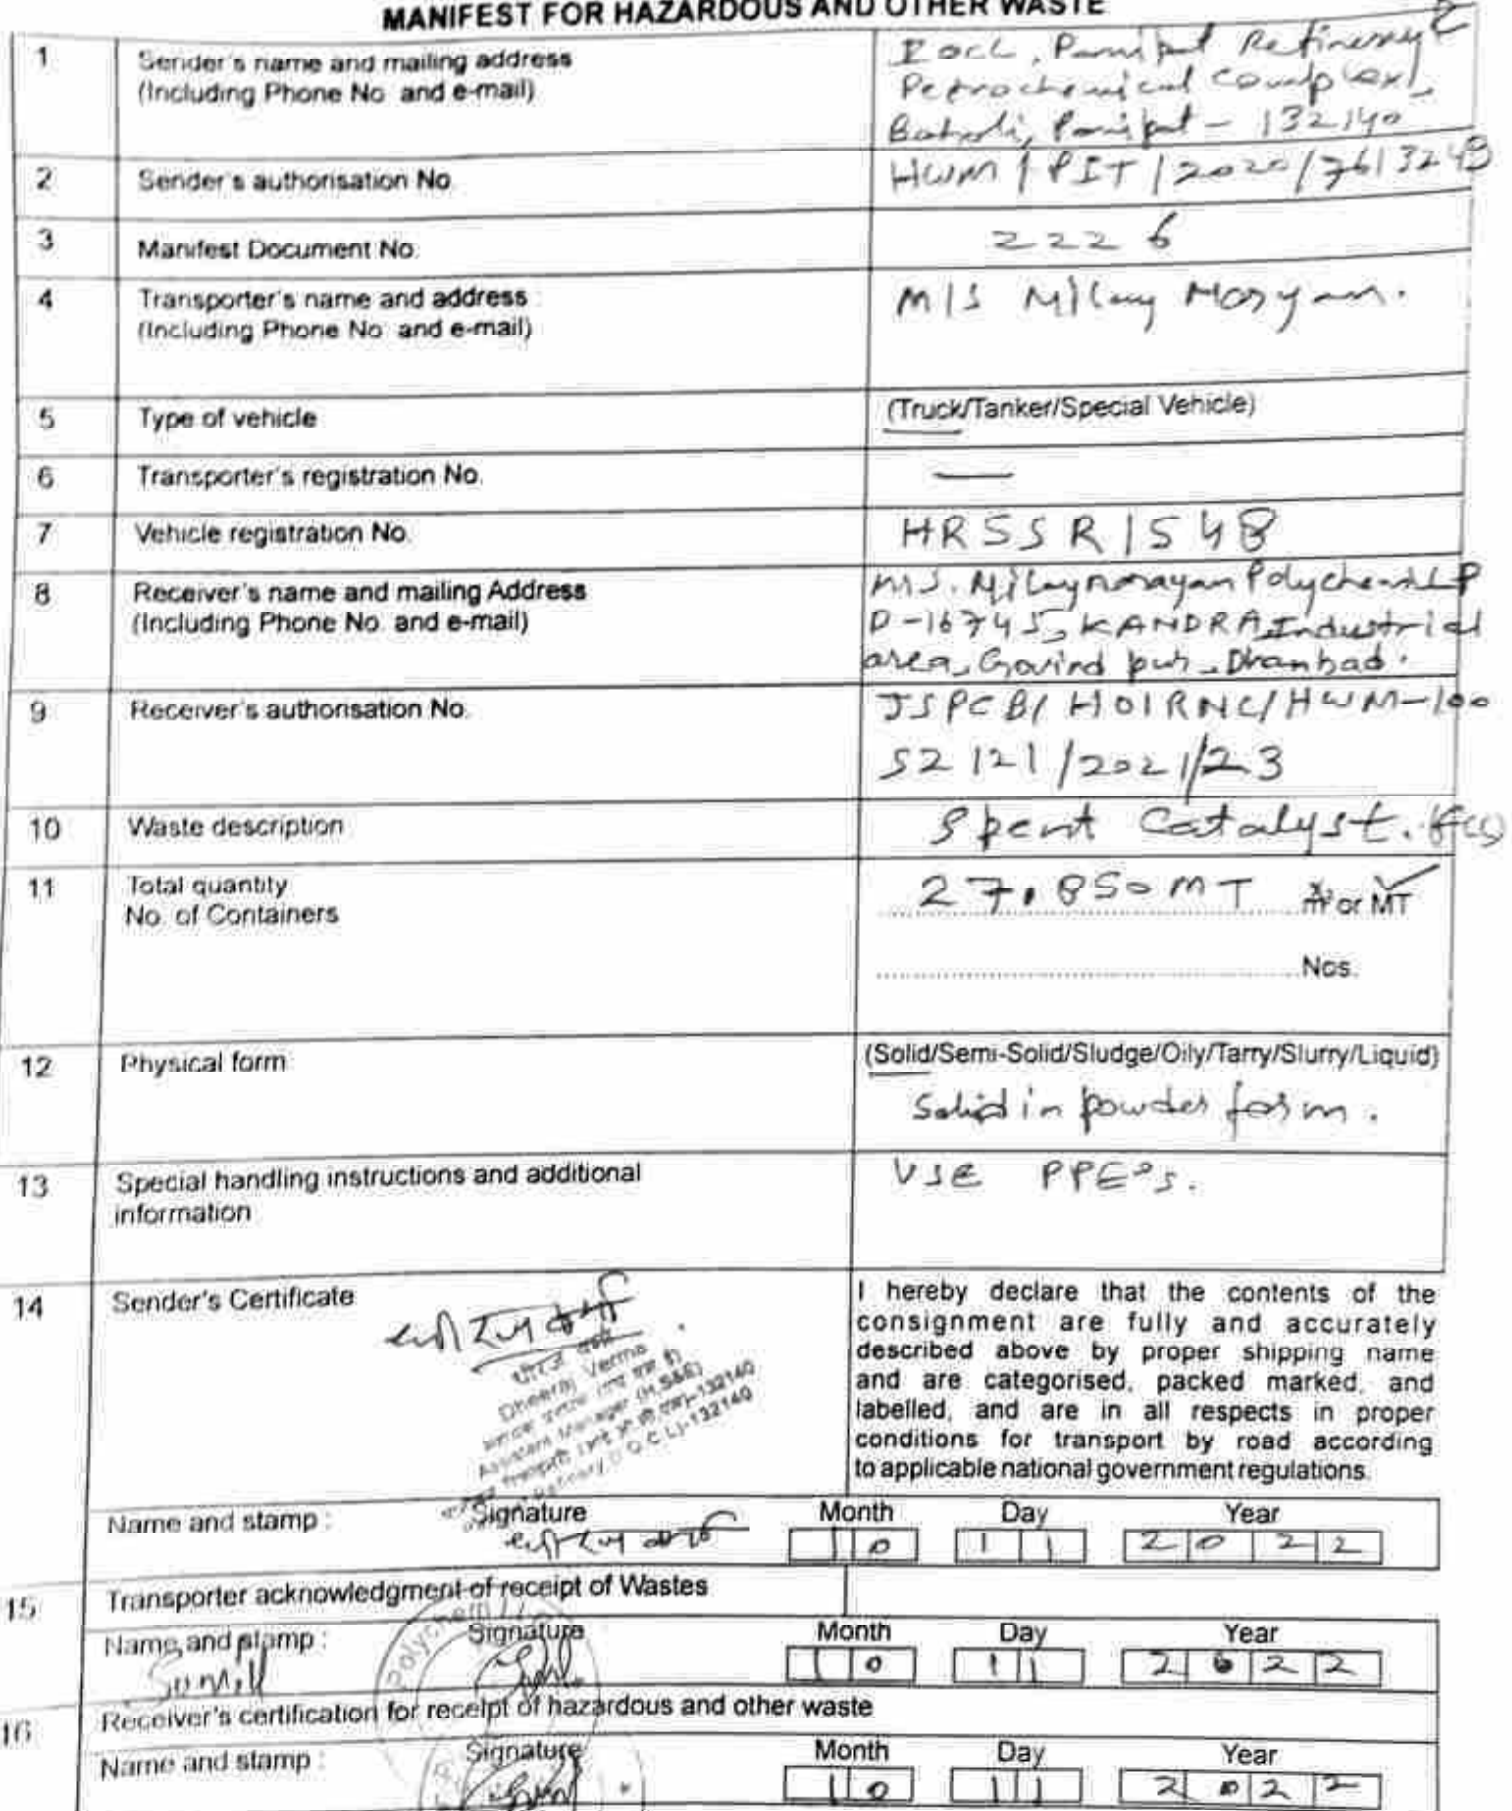 MANIFEST FOR HAZARDOUS AND OTHER WASTE
1 Sender's name and mailing address
(Including Phone No. and e-mail)
IOCL, Panipat Refinery &
Petrochemical Complex,
Baholi, Panipat - 132140
2 Sender's authorisation No. HWM/PIT/2020/7613243
3 Manifest Document No. 2226
4 Transporter's name and address :
(Including Phone No. and e-mail)
M/S
5 Type of vehicle (Truck/Tanker/Special Vehicle)
6 Transporter's registration No. —
7 Vehicle registration No. HR55R1548
8 Receiver's name and mailing Address
(Including Phone No. and e-mail)
MS. Nilaynarayan Polychem LLP
D-167455, KANDRA Industrial
area, Govind pur, Dhanbad.
9 Receiver's authorisation No. JSPCB/HOIRNC/HWM-100
52121/2021/23
10 Waste description Spent Catalyst.
11 Total quantity
No. of Containers
27.850 MT m³ or MT
Nos.
12 Physical form (Solid/Semi-Solid/Sludge/Oily/Tarry/Slurry/Liquid)
Solid in powder form.
13 Special handling instructions and additional
information
USE PPE's.
14 Sender's Certificate
धीरज वर्मा
धीरज वर्मा
Dheeraj Verma
Assistant Manager (H,S&E)
132140
Refinery (I.O.C.L)-132140
I hereby declare that the contents of the
consignment are fully and accurately
described above by proper shipping name
and are categorised, packed marked, and
labelled, and are in all respects in proper
conditions for transport by road according
to applicable national government regulations.
Name and stamp : Signature Month Day Year
धीरज वर्मा 10 11 2022
15 Transporter acknowledgment of receipt of Wastes
Name and stamp : Signature Month Day Year
Polychem 10 11 2022
16 Receiver's certification for receipt of hazardous and other waste
Name and stamp : Signature Month Day Year
10 11 2022